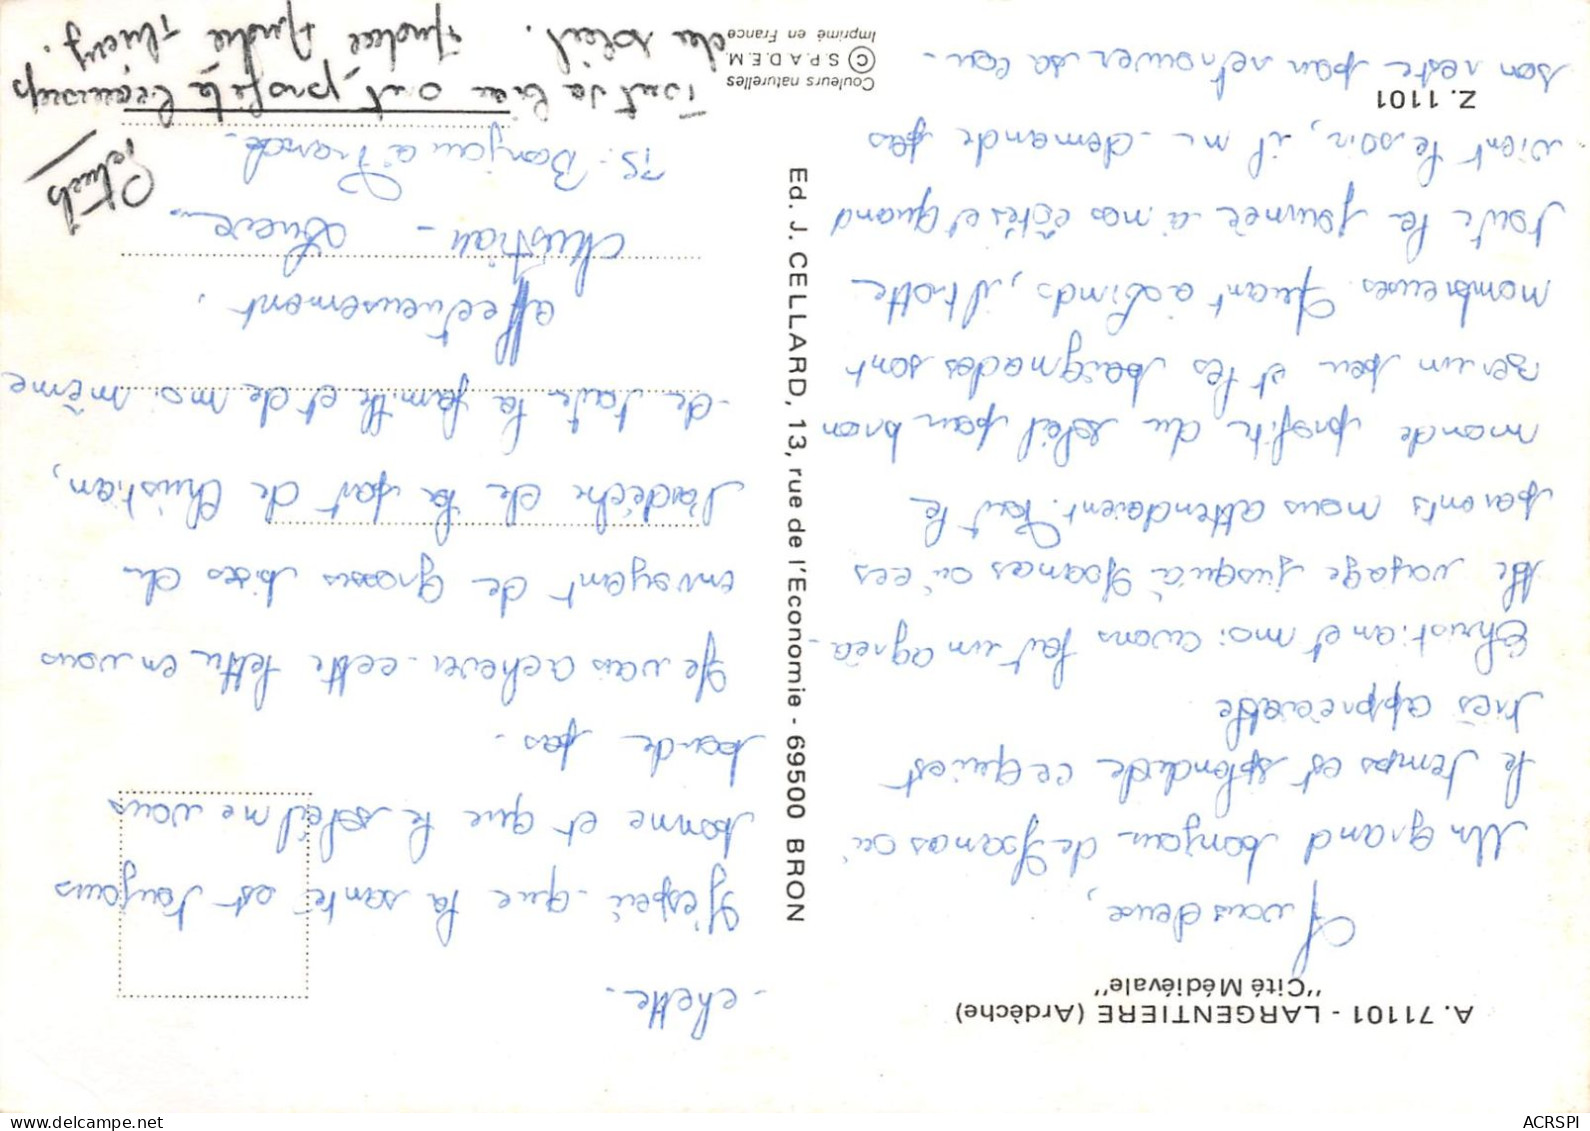 A. 71101 - LARGENTIERE (Ardèche)
"Cité Médiévale"
A vous deux,
Un grand bonjour de Joanas où
le temps est splendide ce qui est
très appréciable
Christian et moi avons fait un agréa-
ble voyage jusqu'à Joanas où ces
parents nous attendaient. Tout le
monde profite du soleil pour bron
zer un peu et les baignades sont
nombreuses. Quant à          , il trotte
toute la journée à nos côtés et quand
vient le soir, il ne demande pas
Z. 1101
son reste pour retrouver sa cou-
-chette -
J'espère que la santé est toujours
bonne et que le soleil ne vous
boude pas -
Je vais achever cette lettre en vous
envoyant de grosses bises de
l'ardèche de la part de Christian,
de toute la famille et de moi même
affectueusement.
Christian -
PS: Bonjour à Franck -
Tout va bien ont profite beaucoup
du soleil.
Ed. J. CELLARD, 13, rue de l'Economie - 69500 BRON
Couleurs naturelles
© S.P.A.D.E.M.
Imprimé en France
ACRSPI